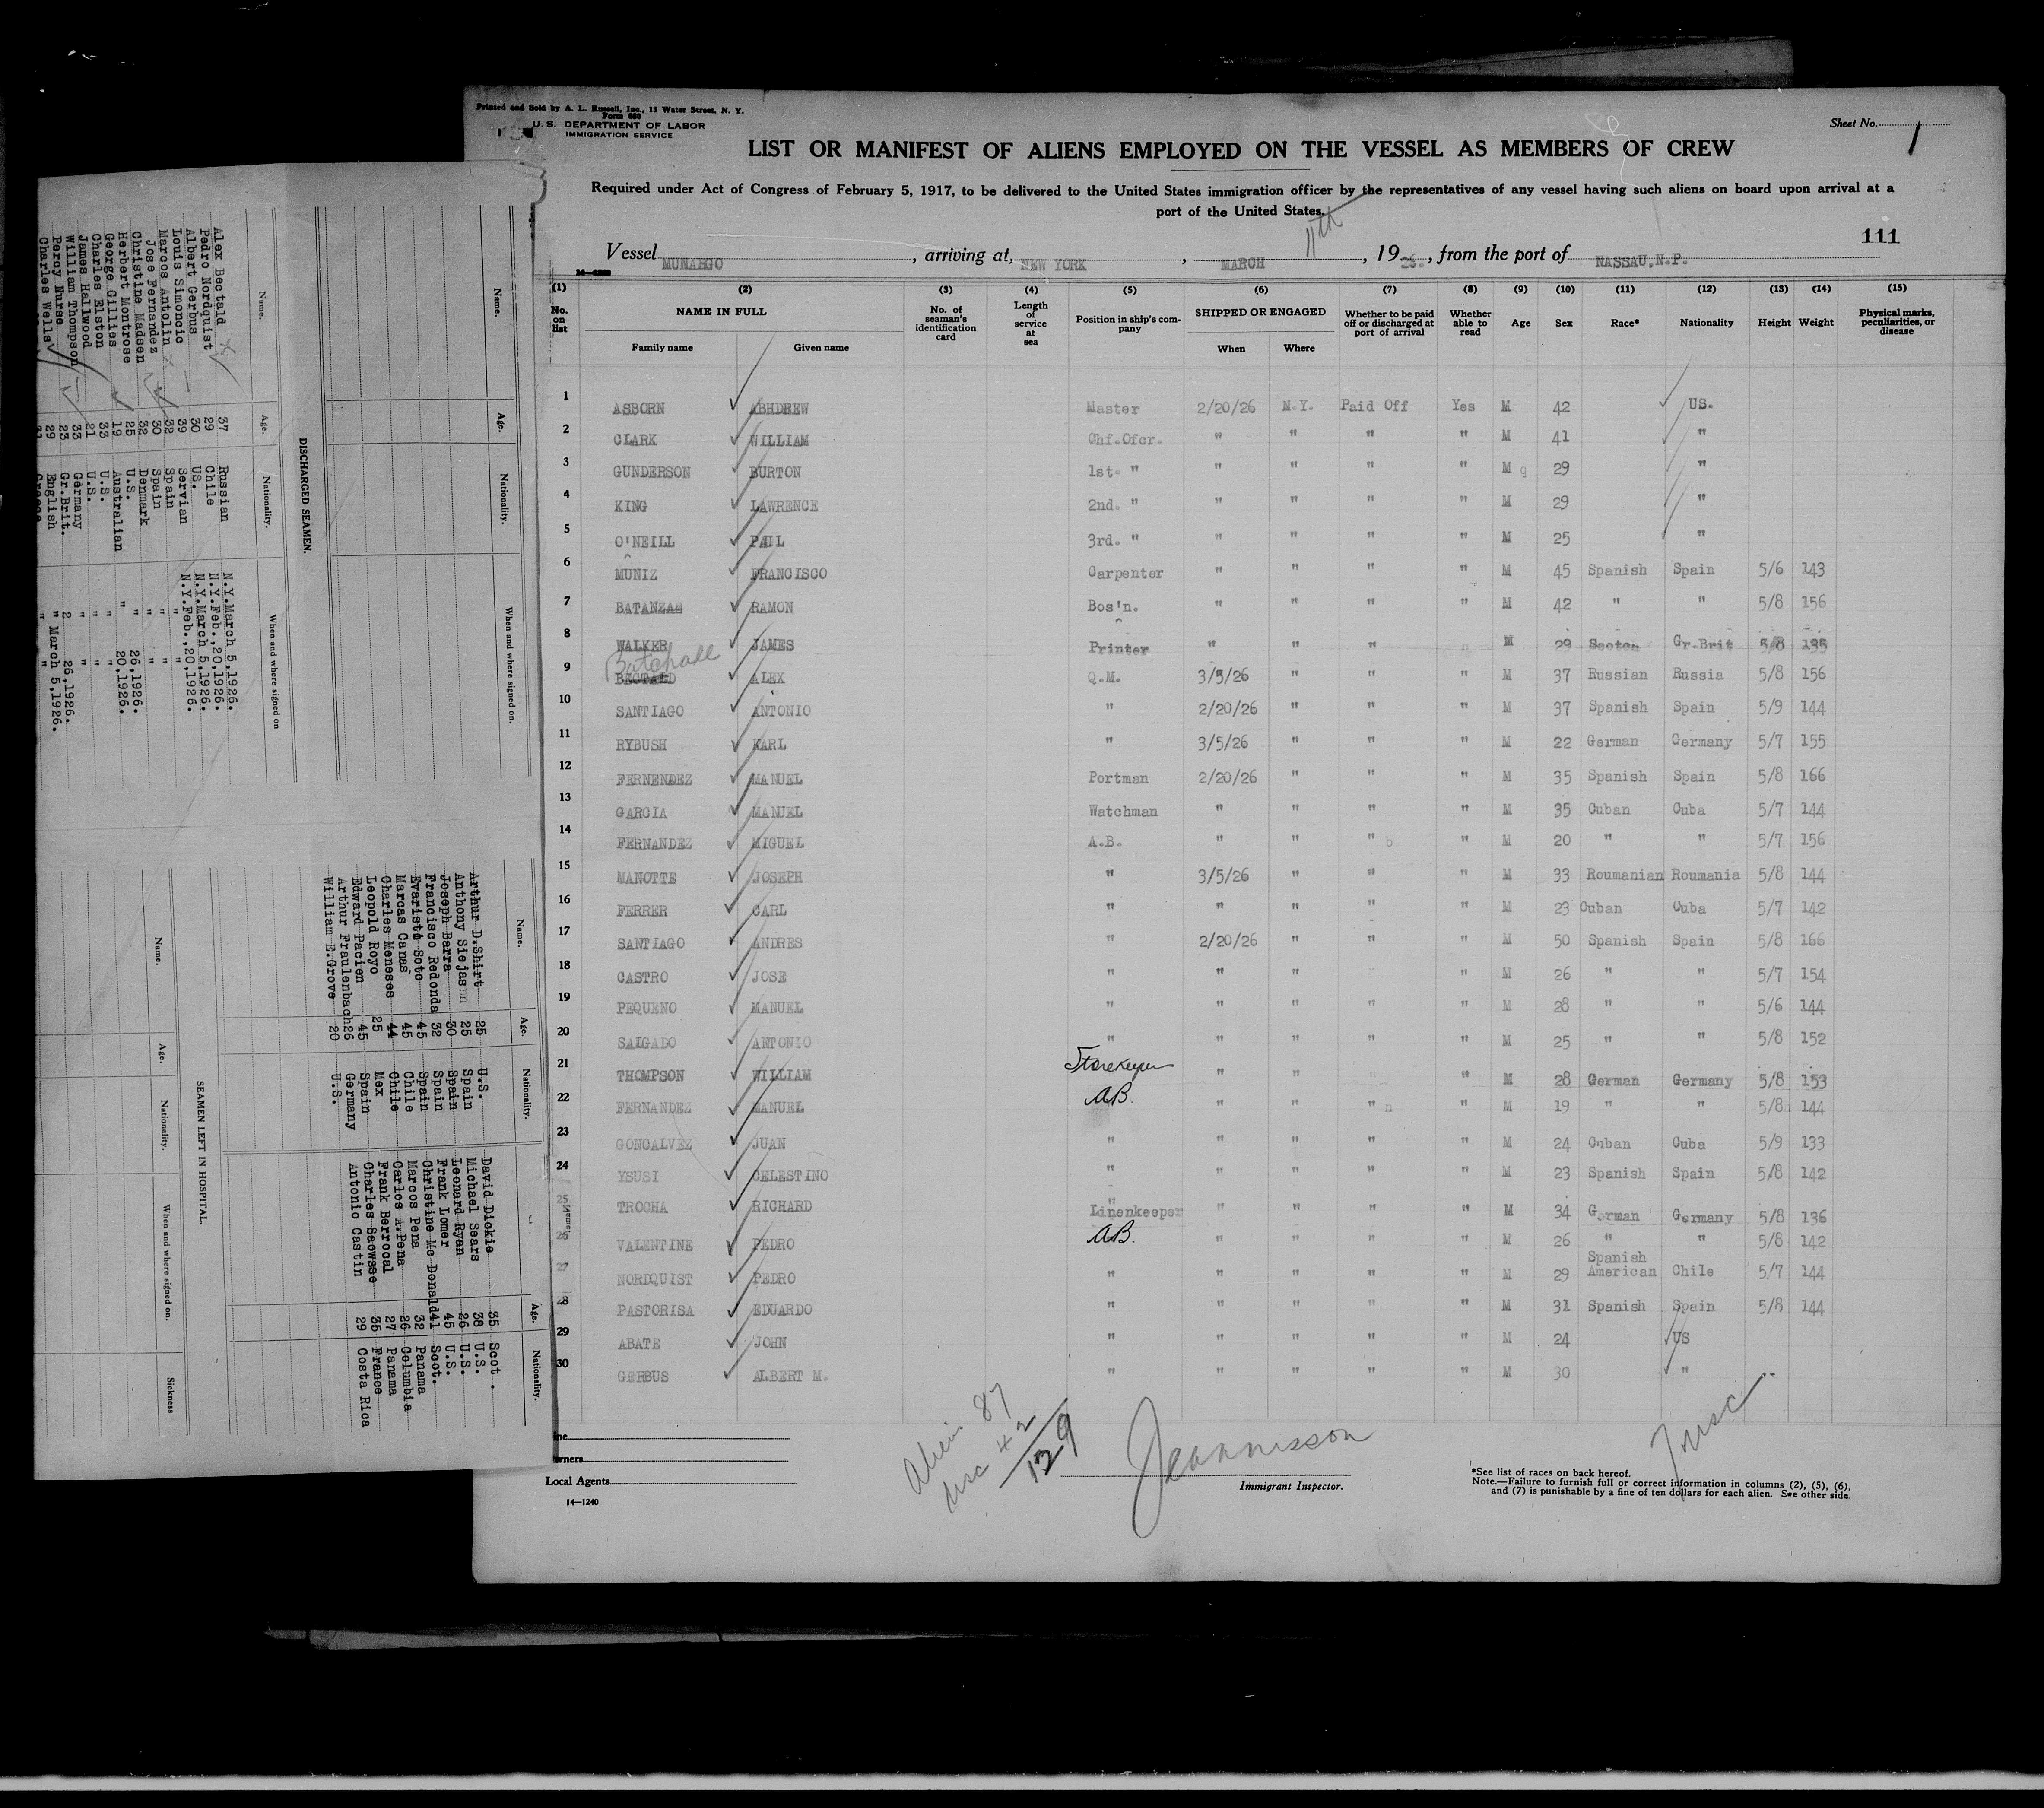 Printed and Sold by A. L. Russell, Inc., 13 Water Street, N. Y.
Form 680
U. S. DEPARTMENT OF LABOR
IMMIGRATION SERVICE
Sheet No. 1
LIST OR MANIFEST OF ALIENS EMPLOYED ON THE VESSEL AS MEMBERS OF CREW
Required under Act of Congress of February 5, 1917, to be delivered to the United States immigration officer by the representatives of any vessel having such aliens on board upon arrival at a
port of the United States.
111
Vessel MUNARGO, arriving at, NEW YORK, MARCH 11th, 1926., from the port of NASSAU,N.P.
14—1240
(1) (2) (3) (4) (5) (6) (7) (8) (9) (10) (11) (12) (13) (14) (15)
No. on list NAME IN FULL Family name Given name No. of seaman's identification card Length of service at sea Position in ship's company SHIPPED OR ENGAGED When Where Whether to be paid off or discharged at port of arrival Whether able to read Age Sex Race* Nationality Height Weight Physical marks, peculiarities, or disease
1 ASBORN ABHDREW Master 2/20/26 N.Y. Paid Off Yes M 42 US.
2 CLARK WILLIAM Chf.Ofcr. " " " " M 41 "
3 GUNDERSON BURTON 1st. " " " " " M 29 "
4 KING LAWRENCE 2nd. " " " " " M 29 "
5 O'NEILL PAUL 3rd. " " " " " M 25 "
6 MUNIZ FRANCISCO Carpenter " " " " M 45 Spanish Spain 5/6 143
7 BATANZAS RAMON Bos'n. " " " " M 42 " " 5/8 156
8 WALKER JAMES Printer " " " " M 29 Scotch Gr.Brit 5/8 135
9 Batchall BECTALD ALEX Q.M. 3/5/26 " " " M 37 Russian Russia 5/8 156
10 SANTIAGO ANTONIO " 2/20/26 " " " M 37 Spanish Spain 5/9 144
11 RYBUSH KARL " 3/5/26 " " " M 22 German Germany 5/7 155
12 FERNENDEZ MANUEL Portman 2/20/26 " " " M 35 Spanish Spain 5/8 166
13 GARCIA MANUEL Watchman " " " " M 35 Cuban Cuba 5/7 144
14 FERNANDEZ MIGUEL A.B. " " " " M 20 " " 5/7 156
15 MANOTTE JOSEPH " 3/5/26 " " " M 33 Roumanian Roumania 5/8 144
16 FERRER CARL " " " " " M 23 Cuban Cuba 5/7 142
17 SANTIAGO ANDRES " 2/20/26 " " " M 50 Spanish Spain 5/8 166
18 CASTRO JOSE " " " " M 26 " " 5/7 154
19 PEQUENO MANUEL " " " " " M 28 " " 5/6 144
20 SALGADO ANTONIO " " " " " M 25 " " 5/8 152
21 THOMPSON WILLIAM Storekeeper " " " M 28 German Germany 5/8 153
22 FERNANDEZ MANUEL AB. " " " " M 19 " " 5/8 144
23 GONCALVEZ JUAN " " " " " M 24 Cuban Cuba 5/9 133
24 YSUSI CELESTINO " " " " " M 23 Spanish Spain 5/8 142
25 TROCHA RICHARD " Linenkeeper " " " " M 34 German Germany 5/8 136
26 VALENTINE PEDRO AB. " " " " M 26 " " 5/8 142
27 NORDQUIST PEDRO " " " " " M 29 Spanish American Chile 5/7 144
28 PASTORISA EDUARDO " " " " " M 31 Spanish Spain 5/8 144
29 ABATE JOHN " " " " " M 24 US
30 GERBUS ALBERT M. " " " " " M 30 "
Line
Owners
Local Agents
14—1240
Alien 87
usc 42
129
Jeannisson
Immigrant Inspector.
*See list of races on back hereof.
Note.—Failure to furnish full or correct information in columns (2), (5), (6),
and (7) is punishable by a fine of ten dollars for each alien. See other side.
Name. Age. Nationality. When and where signed on.
DISCHARGED SEAMEN.
Name. Age. Nationality. When and where signed on
Alex Bectald 37 Russian N.Y.March 5,1926.
Pedro Nordquist 29 Chile N.Y.Feb.,20,1926.
Albert Gerbus 30 US. N.Y.March 5,1926.
Louis Simoncic 39 Servian N.Y.Feb.,20,1926.
Marcos Antolin 32 Spain " "
Jose Fernandez 30 Spain " "
Christine Madsen 32 Denmark " "
Herbert Montrose 25 U.S. " 26,1926.
George Gillies 19 Australian " 20,1926.
Charles Elston 33 U.S. " "
James Hallwood 21 U.S. " "
William Thompson 33 Germany " "
Percy Nurse 23 Gr.Brit. 2 26,1926.
Charles Wells 29 English " March 5,1926.
Name. Age. Nationality.
Arthur D.Shirt 25 U.S.
Anthony Siejasnn 25 Spain
Joseph Barra 30 Spain
Francisco Redonda 32 Spain
Evaristo Soto 45 Spain
Marcas Canas 45 Chile
Charles Meneses 44 Chile
Leopold Royo 25 Mex
Edward Pacien 45 Spain
Arthur Fraulenbach 26 Germany
William E.Grove 20 U.S.
Age. Nationality.
David Dickie 35 Scot.
Michael Sears 38 U.S.
Leonard Ryan 26 U.S.
Frank Lomer 45 U.S.
Christine Mc Donald 41 Scot.
Marcos Pena 32 Panama
Carlos A.Pena 26 Columbia
Frank Berocal 27 Panama
Charles Saowsse 35 France
Antonio Castin 29 Costa Rica
SEAMEN LEFT IN HOSPITAL.
Name. Age. Nationality. When and where signed on. Sickness